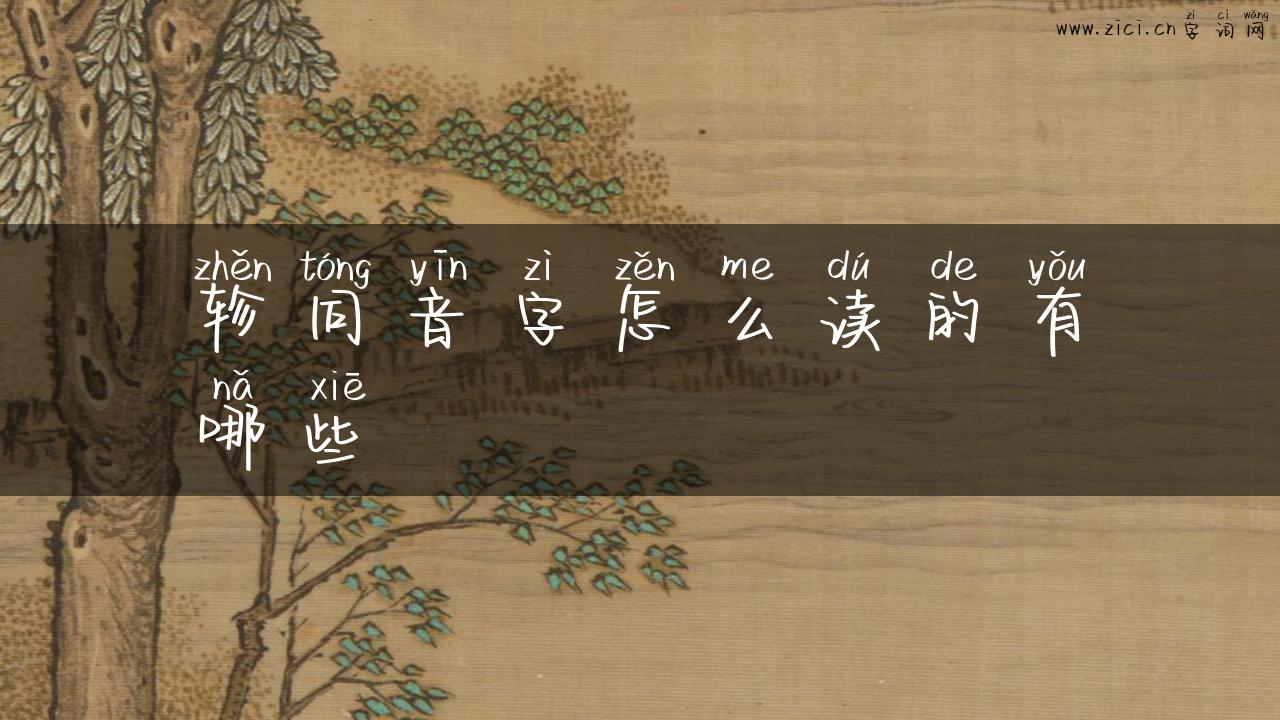 zì cí wǎng
www.zici.cn 字词网
zhěn tóng yīn zì zěn me dú de yǒu
轸同音字怎么读的有
nǎ xiē
哪些